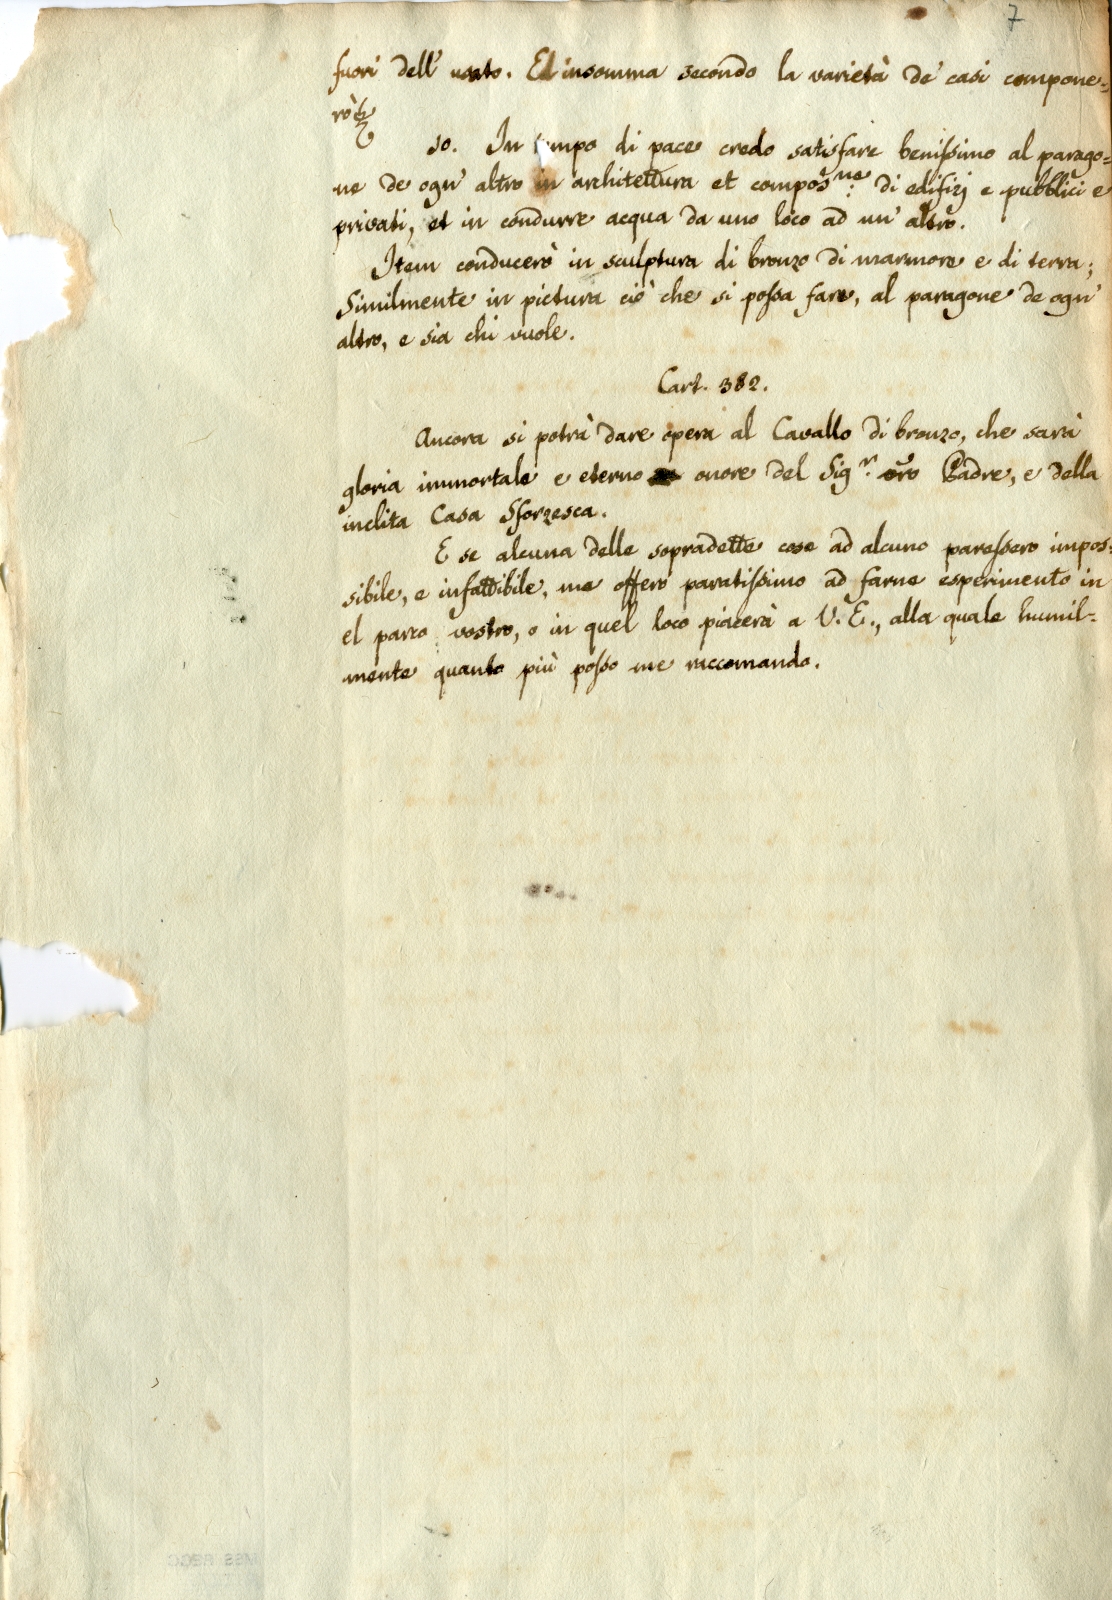 7
fuori dell' usato. Et insomma secondo la varietà de' casi compone-
rò &c
10. In tempo di pace credo satisfare benissimo al parago-
ne de ogn' altro in architettura et compos.ne di edifizj e pubblici e
privati, et in condurre acqua da uno loco ad un' altro.
Item conducerò in sculptura di bronzo di marmore e di terra;
Similmente in pictura ciò che si possa fare, al paragone de ogn'
altro, e sia chi vuole.
Cart. 382.
Ancora si potrà dare opera al Cavallo di bronzo, che sarà
gloria immortale e eterno onore del Sig.r vro Padre, e della
inclita Casa Sforzesca.
E se alcuna delle sopradette cose ad alcuno paressero impos-
sibile, e infattibile, me offero paratissimo ad farne esperimento in
el parco vostro, o in quel loco piacerà a V. E., alla quale humil-
mente quanto più posso me raccomando.